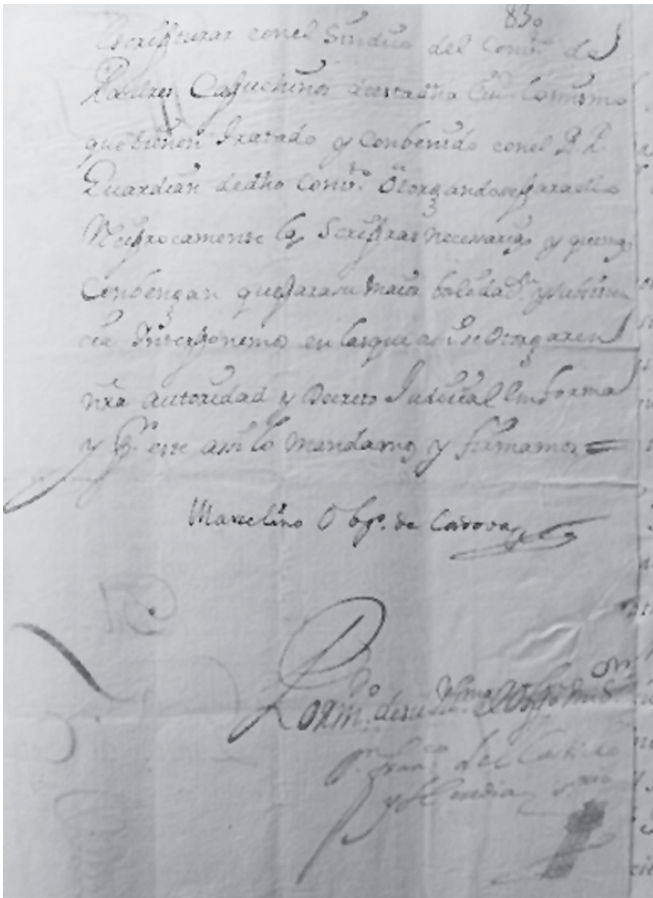 830
Escripturar con el Sindico del Conv.to de
Padres Capuchinos de esta dha Ciu.d lo mismo
que tienen tratado y conbenido con el P. P.
Guardian de dho Conv.to Otorgandose para ello
Reciprocamente las Scripturas necesarias y que mas
Conbengan que para su maior balidad.n y subsisten
cia Interponemos en las que asi se Otorgaren
nra autoridad y Decreto Judicial En forma
y p.r este assi lo mandamos y firmamos =
Marcelino Obpo. de Cordova
Por m.do de su Ill.ma el Obpo mi S.or
Fran.co del Castillo
y Heredia s.rio